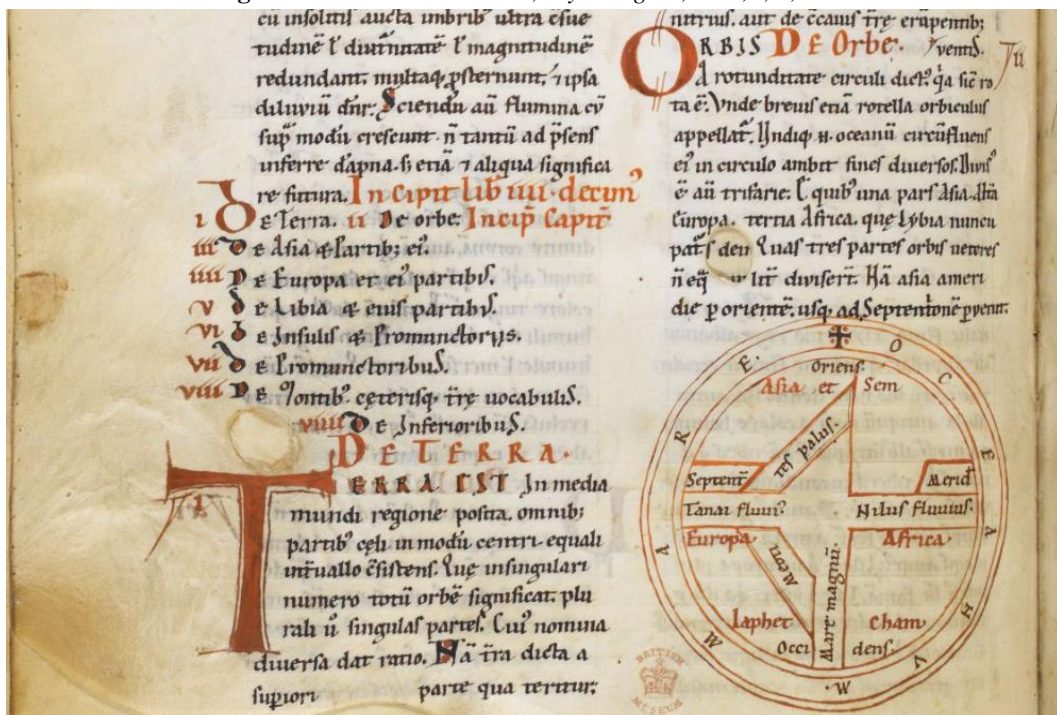 cū insolitis aucta imbrib' ultra ɔsue
tudinē ł diuturnitatē ł magnitudinē
redundant. multaq; psternunt. ⁊ ipsa
diluuiū dn̄r. Sciendū aū flumina cū
sup̄ modū crescunt. n̄ tantū ad p̄sens
inferre dāpna. s; etiā ⁊ aliqua significa
re futura. Incipit lib' iiii decim'
i De Terra. ii De orbe. Incip̄ Capit̄
iii De Asia & Partib; ei'.
iiii De Europa et ei' partibus.
v de Libia & euis partibus.
vi de Insulis & Promunctoriis.
vii De Promunctoribus.
viii De Montib' cęterisq; trę uocabulis.
viiii De Inferioribus.
DE TERRA.
TERRA EST In media
mundi regione posita. omnib;
partib' cęli in modū centri equali
int̄uallo ɔsistens. Quę in singulari
numero totū orbē significat. plu
rali ū singulas partes. Cui' nomina
diuersa dat ratio. Nā t̄ra dicta a
sup̄iori parte qua teritur:
nitruis. aut de ɔcauis trę erūpentib;
ORBIS De Orbe. uentis. ii
A rotunditate circuli dict'. q̄a sic ro
ta ē. Vnde breuis etiā rotella orbiculus
appellat̄. Undiq; n. oceanū circūfluens
ei' in circulo ambit fines diuersos. Diuis'
ē aū trifarie. E quib' una pars Asia. Alt̄a
Europa. tertia Africa. quę Lybia nuncu
pat̄ Quas tres partes orbis ueteres
n̄ eq̄ lit̄ diuiser̄t. Nā asia ameri
die p orientē. usq; ad Septent̄onē puenit.
MARE OCEANUM
Oriens.
Asia et Sem
tes palus.
Septent̄
Merid̄
Tanai fluui'.
Nilus fluuius.
Europa.
Africa.
Meoti
Mare magnū.
Iaphet
Cham
Occi dens.
BRITISH MUSEUM